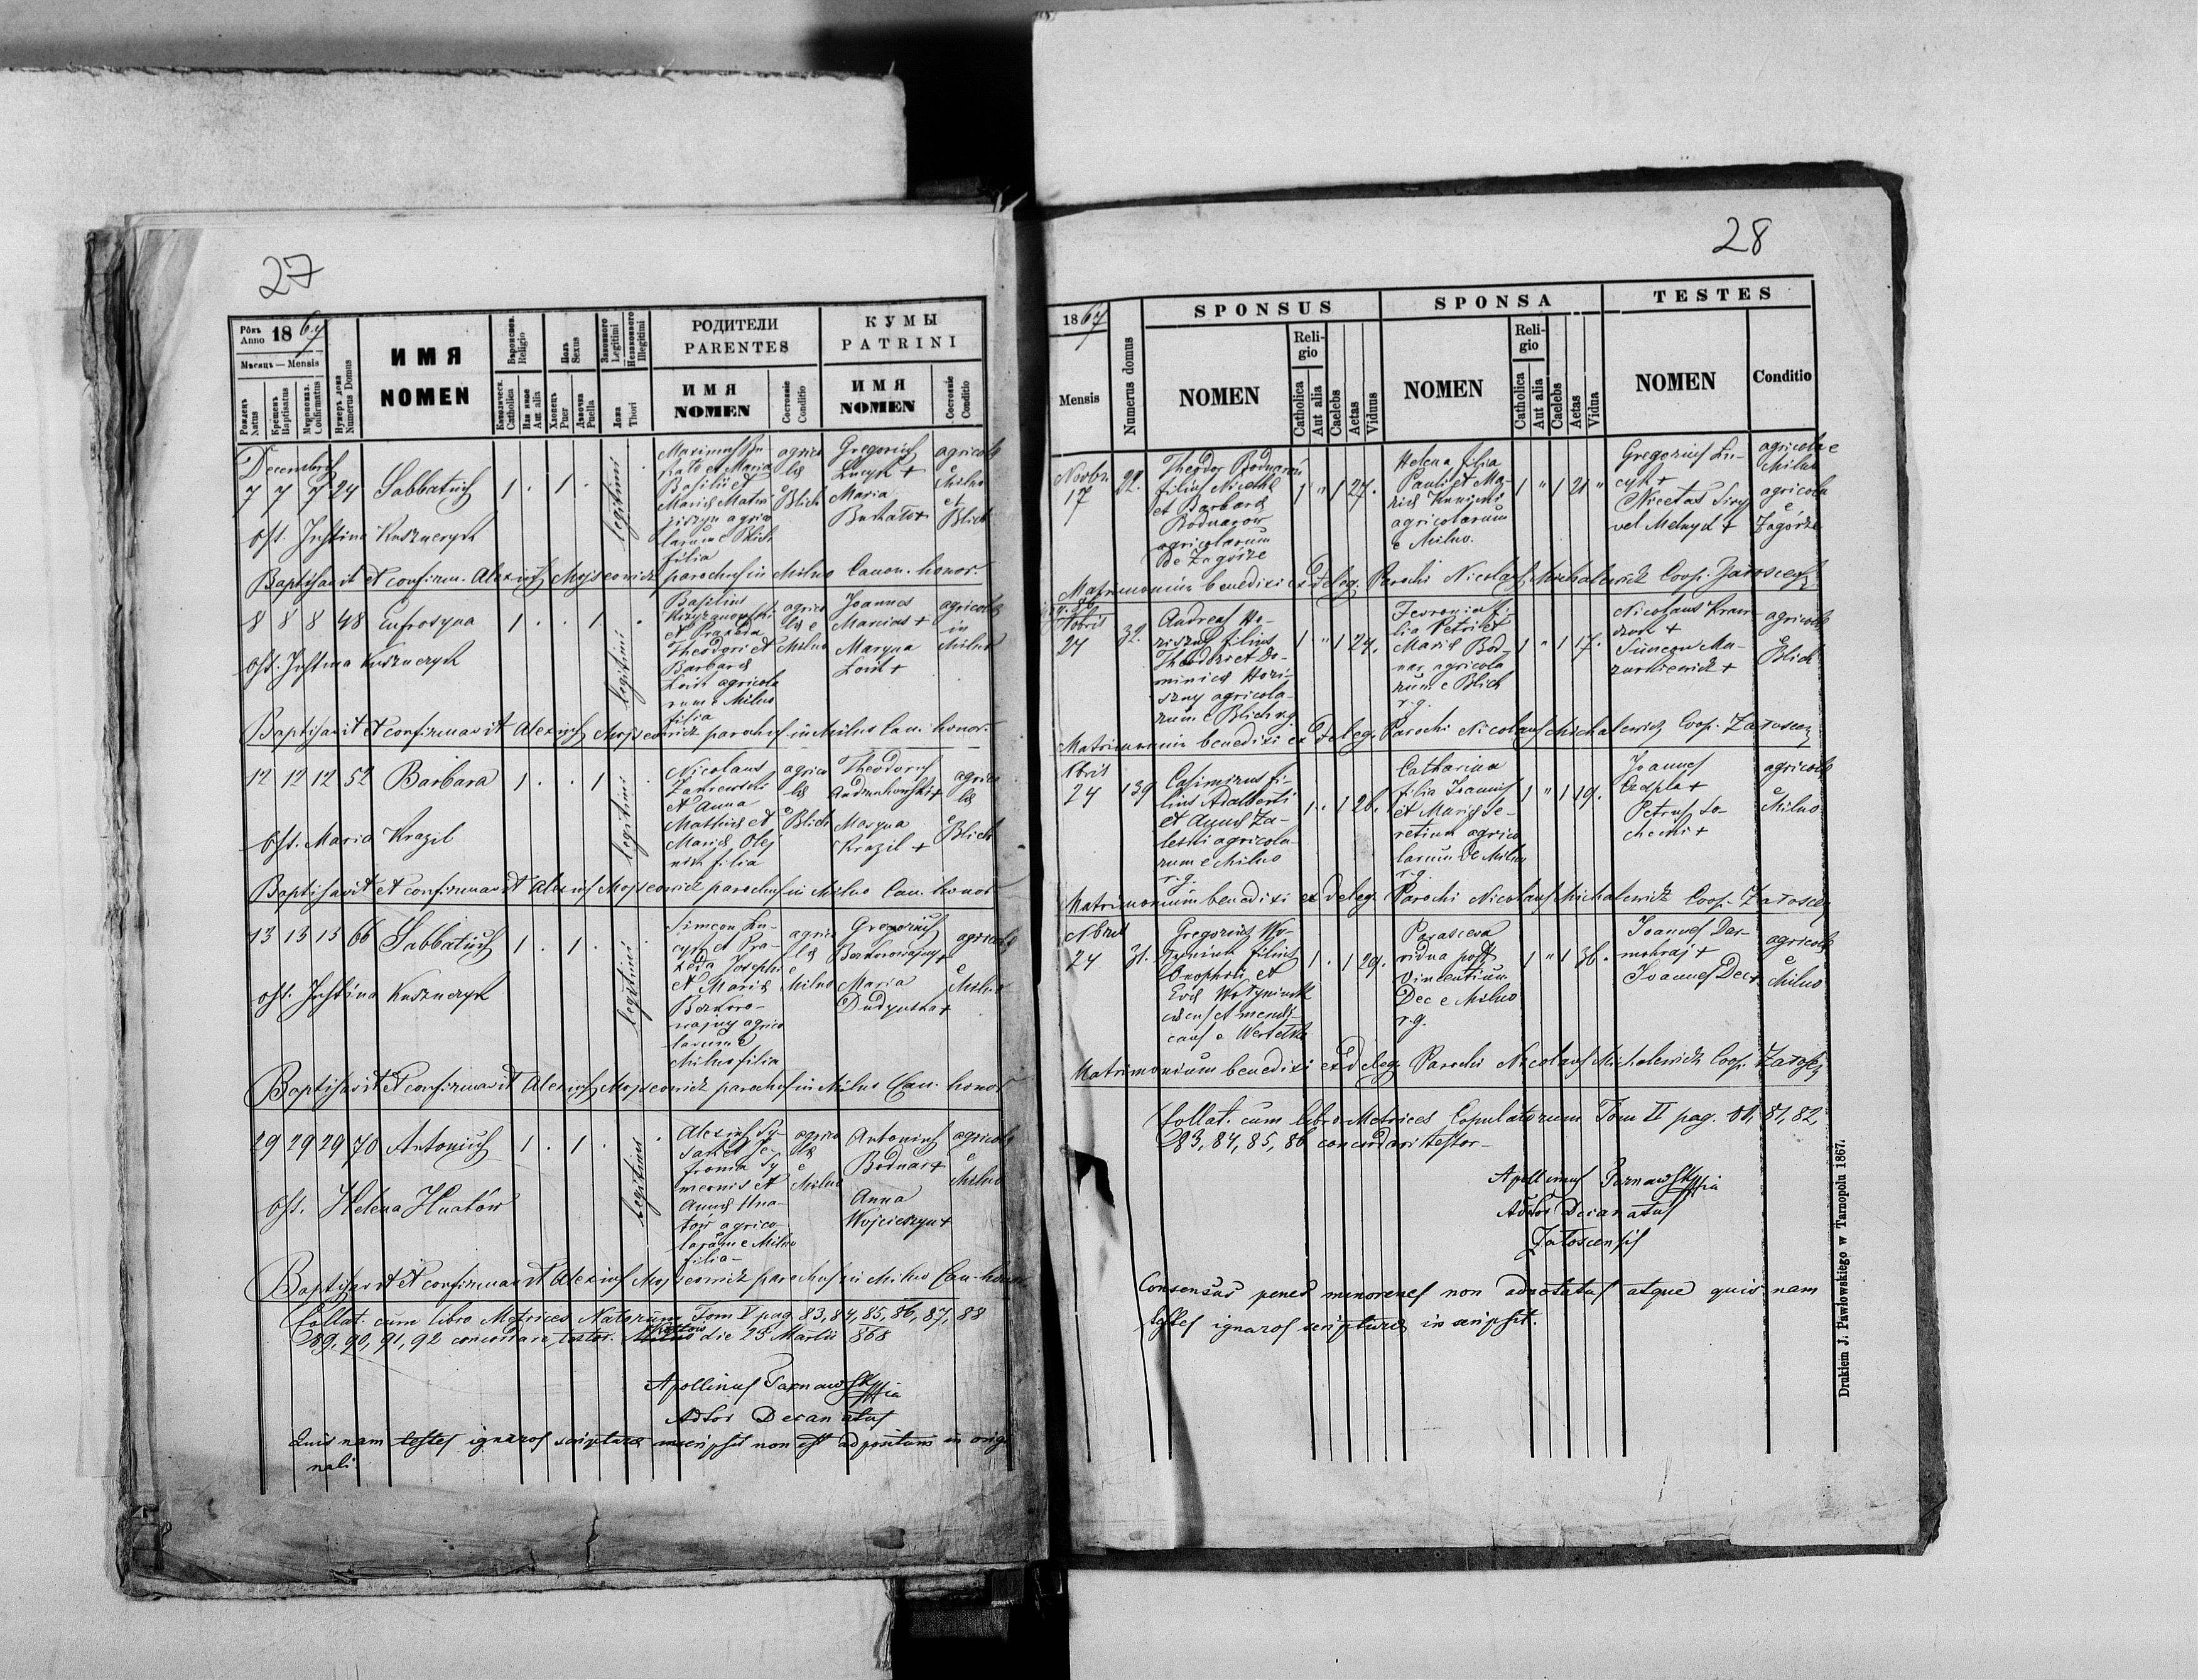 27
Рокъ Anno 1867
Мѣсяць — Mensis
Рожденъ Natus
Крещенъ Baptisatus
Мѵропомаз. Confirmatus
Нумеръ дома Numerus Domus
ИМЯ
NOMEN
Вѣроиспов. Religio
Католическ. Catholica
Или иное Aut alia
Полъ Sexus
Хлопець Puer
Дѣвочка Puella
Законного Legitimi
Незаконного Illegitimi
Ложа Thori
РОДИТЕЛИ
PARENTES
ИМЯ
NOMEN
Состояніе Conditio
КУМЫ
PATRINI
ИМЯ
NOMEN
Состояніе Conditio
Decembris
7 7 7 24 Sabbatius 1 . 1 . legitimi
Maximus
et Maria
Basilii et
Maria
agrico
larum e Blich
filia
agrico
lae
e
Blich
Gregorius
Lucyk +
Maria
agricola
e
Milno
et
Blich
Obst. Justina Kuszneryk
Baptisavit et confirm. Alexius Mojseowicz parochus in Milno Canon. honor.
8 8 8 48 Eufrosyna 1 . . 1 legitimi
Basilius
et Praxeda
Theodori et
Barbarae
agricola
rum e Milno
filia
agrico
lae e
Milno
Joannes
Marcias +
Maryna
agricola
in
Milno
Obst. Justina Kuszneryk
Baptisavit et confirmavit Alexius Mojseowicz parochus in Milno Can. honor.
12 12 12 52 Barbara 1 . . 1 legitimi
Nicolaus
Zakrewski
et Anna
Mathiae et
Maria Olej
nik filia
agrico
lae
e
Blich
Theodorus
Andruchowski +
Maryna
Krazil +
agrico
lae
e
Blich
Obst. Maria Krazil
Baptisavit et confirmavit Alexius Mojseowicz parochus in Milno Can. honor
13 13 13 66 Sabbatius 1 . 1 . legitimi
Simeon Lu-
cyk et Pra-
xeda Josephi
et Maria
Bezkoro-
wajny agrico
larum e
Milno filia
agrico
lae
e
Milno
Gregorius
Bezkorowajny +
Maria
Dudyszka +
agricola
e
Milno
obst. Justina Kuszneryk
Baptisavit et confirmavit Alexius Mojseowicz parochus in Milno Can. honor
29 29 29 70 Antonius 1 . 1 . legitimus
Alexius
et
Sy
meonis et
Anna Hna-
tow agrico-
larum e Milno
filia-
agrico
lae
e
Milno
Antonius
Bodnar +
Anna
Wojcieszyn +
agricola
e
Milno
Obst. Helena Hnatów
Baptisavit et confirmavit Alexius Mojseowicz parochus in Milno Can. honor
Collat. cum libro Metrices Natorum Tom V pag. 83, 84, 85, 86, 87, 88
89, 90, 91, 92 concordare testor. die 25 Martii 868
Apollinus Tarnawski
Adtor Decanatus
Quis nam testes ignaros scripturae inscripsit non est adpositum in origi
nali
28
1867
Mensis
Numerus domus
SPONSUS
NOMEN
Reli-
gio
Catholica
Aut alia
Caelebs
Aetas
Viduus
SPONSA
NOMEN
Reli-
gio
Catholica
Aut alia
Caelebs
Aetas
Vidua
TESTES
NOMEN
Conditio
Novbr.
17
22.
Theodor Bodnarow
filius Nicetae
et Barbarae
Bodnarow
agricolarum
de Zagórze
1 " 1 27.
Helena filia
Pauli et Ma-
riae
agricolarum
e Milno.
1 " 1 21 "
Gregorius Lu-
cyk +
Nicetas
vel Melnyk +
agricola e
Milno
agricola
e
Zagórze
Matrimonium benedixi ex deleg. Parochi Nicolaus Michalewicz Coop. Załoscens
9bris
24
32.
Andreas Ho-
riszny filius
Theodori et Do-
minicae Hori-
szny agricola-
rum e Blich r.g.
1 " 1 24.
Fevronia fi-
lia Petri et
Mariae Bod-
nar agricola
rum e Blich
r.g.
1 " 1 17.
Nicolaus Kraw-
czuk +
Simeon Ma-
zurkiewicz +
agricola
Blich
Matrimonium benedixi ex deleg. Parochi Nicolaus Michalewicz Coop. Załoscens
Nbris
24
139
Casimirus fi-
lius Adalberti
et Agnes Za-
leski agricola-
rum e Milno
r.g.
1 . 1 26.
Catharina
filia Joannis
et Mariae Se-
retiuk agrico
larum de Milno
r.g.
1 " 1 19.
Joannes
Czepla +
Petrus
agricola
e
Milno
Matrimonium benedixi ex deleg. Parochi Nicolaus Michalewicz Coop. Załoscens
Nbris
24
31.
Gregorius Wo-
filius
Onophrii et
Evae
e Wertelka
1 . 1 29.
Parasceva
vidua post
Vincentium
Dec e Milno
r.g.
1 " 1 36.
Joannes Dar-
mohraj +
Joannes Dec +
agricola
e
Milno
Matrimonium benedixi ex deleg. Parochi Nicolaus Michalewicz Coop. Załosc
Collat. cum libro Metrices Copulatorum Tom II pag. 81, 81, 82,
83, 84, 85, 86 concordari testor-
Apollinus Tarnawski
Adtor Decanatus
Załoscensis
Consensus penes minorenes non adnotatus atque quis nam
testes ignaros scripturae inscripsit.
Drukiem J. Pawłowskiego w Tarnopolu 1867.